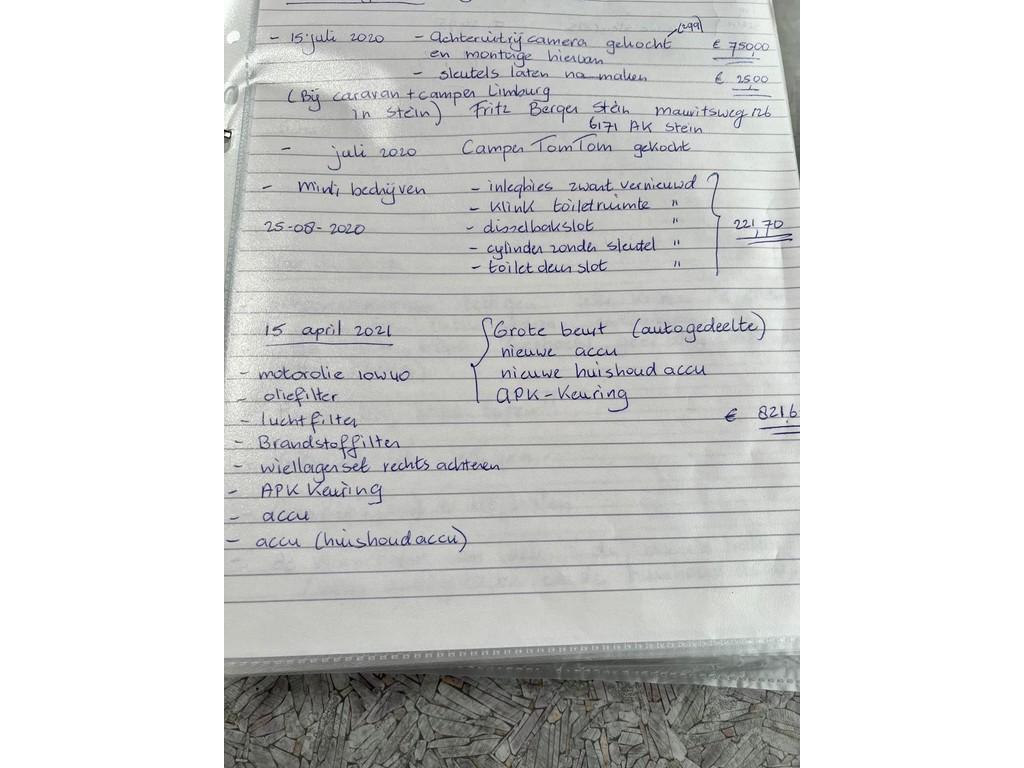 (299)
- 15 juli 2020 - Achteruitrij camera gekocht € 750,00
en montage hiervan
- sleutels laten na maken € 25,00
(Bij caravan + camper Limburg
in Stein) Fritz Berger Stein Mauritsweg 126
6171 AK Stein
- juli 2020 Camper TomTom gekocht
- Minti bedrijven - inlegbies zwart vernieuwd
- Klink toiletruimte "
25-08-2020 - disselbakslot " 221,70
- cylinder zonder sleutel "
- toilet deur slot "
15 april 2021 Grote beurt (autogedeelte)
nieuwe accu
- motorolie 10W40 nieuwe huishoud accu
- oliefilter APK-Keuring
- luchtfilter € 821,6
- Brandstoffilter
- wiellagerset rechts achteren
- APK Keuring
- accu
- accu (huishoudaccu)